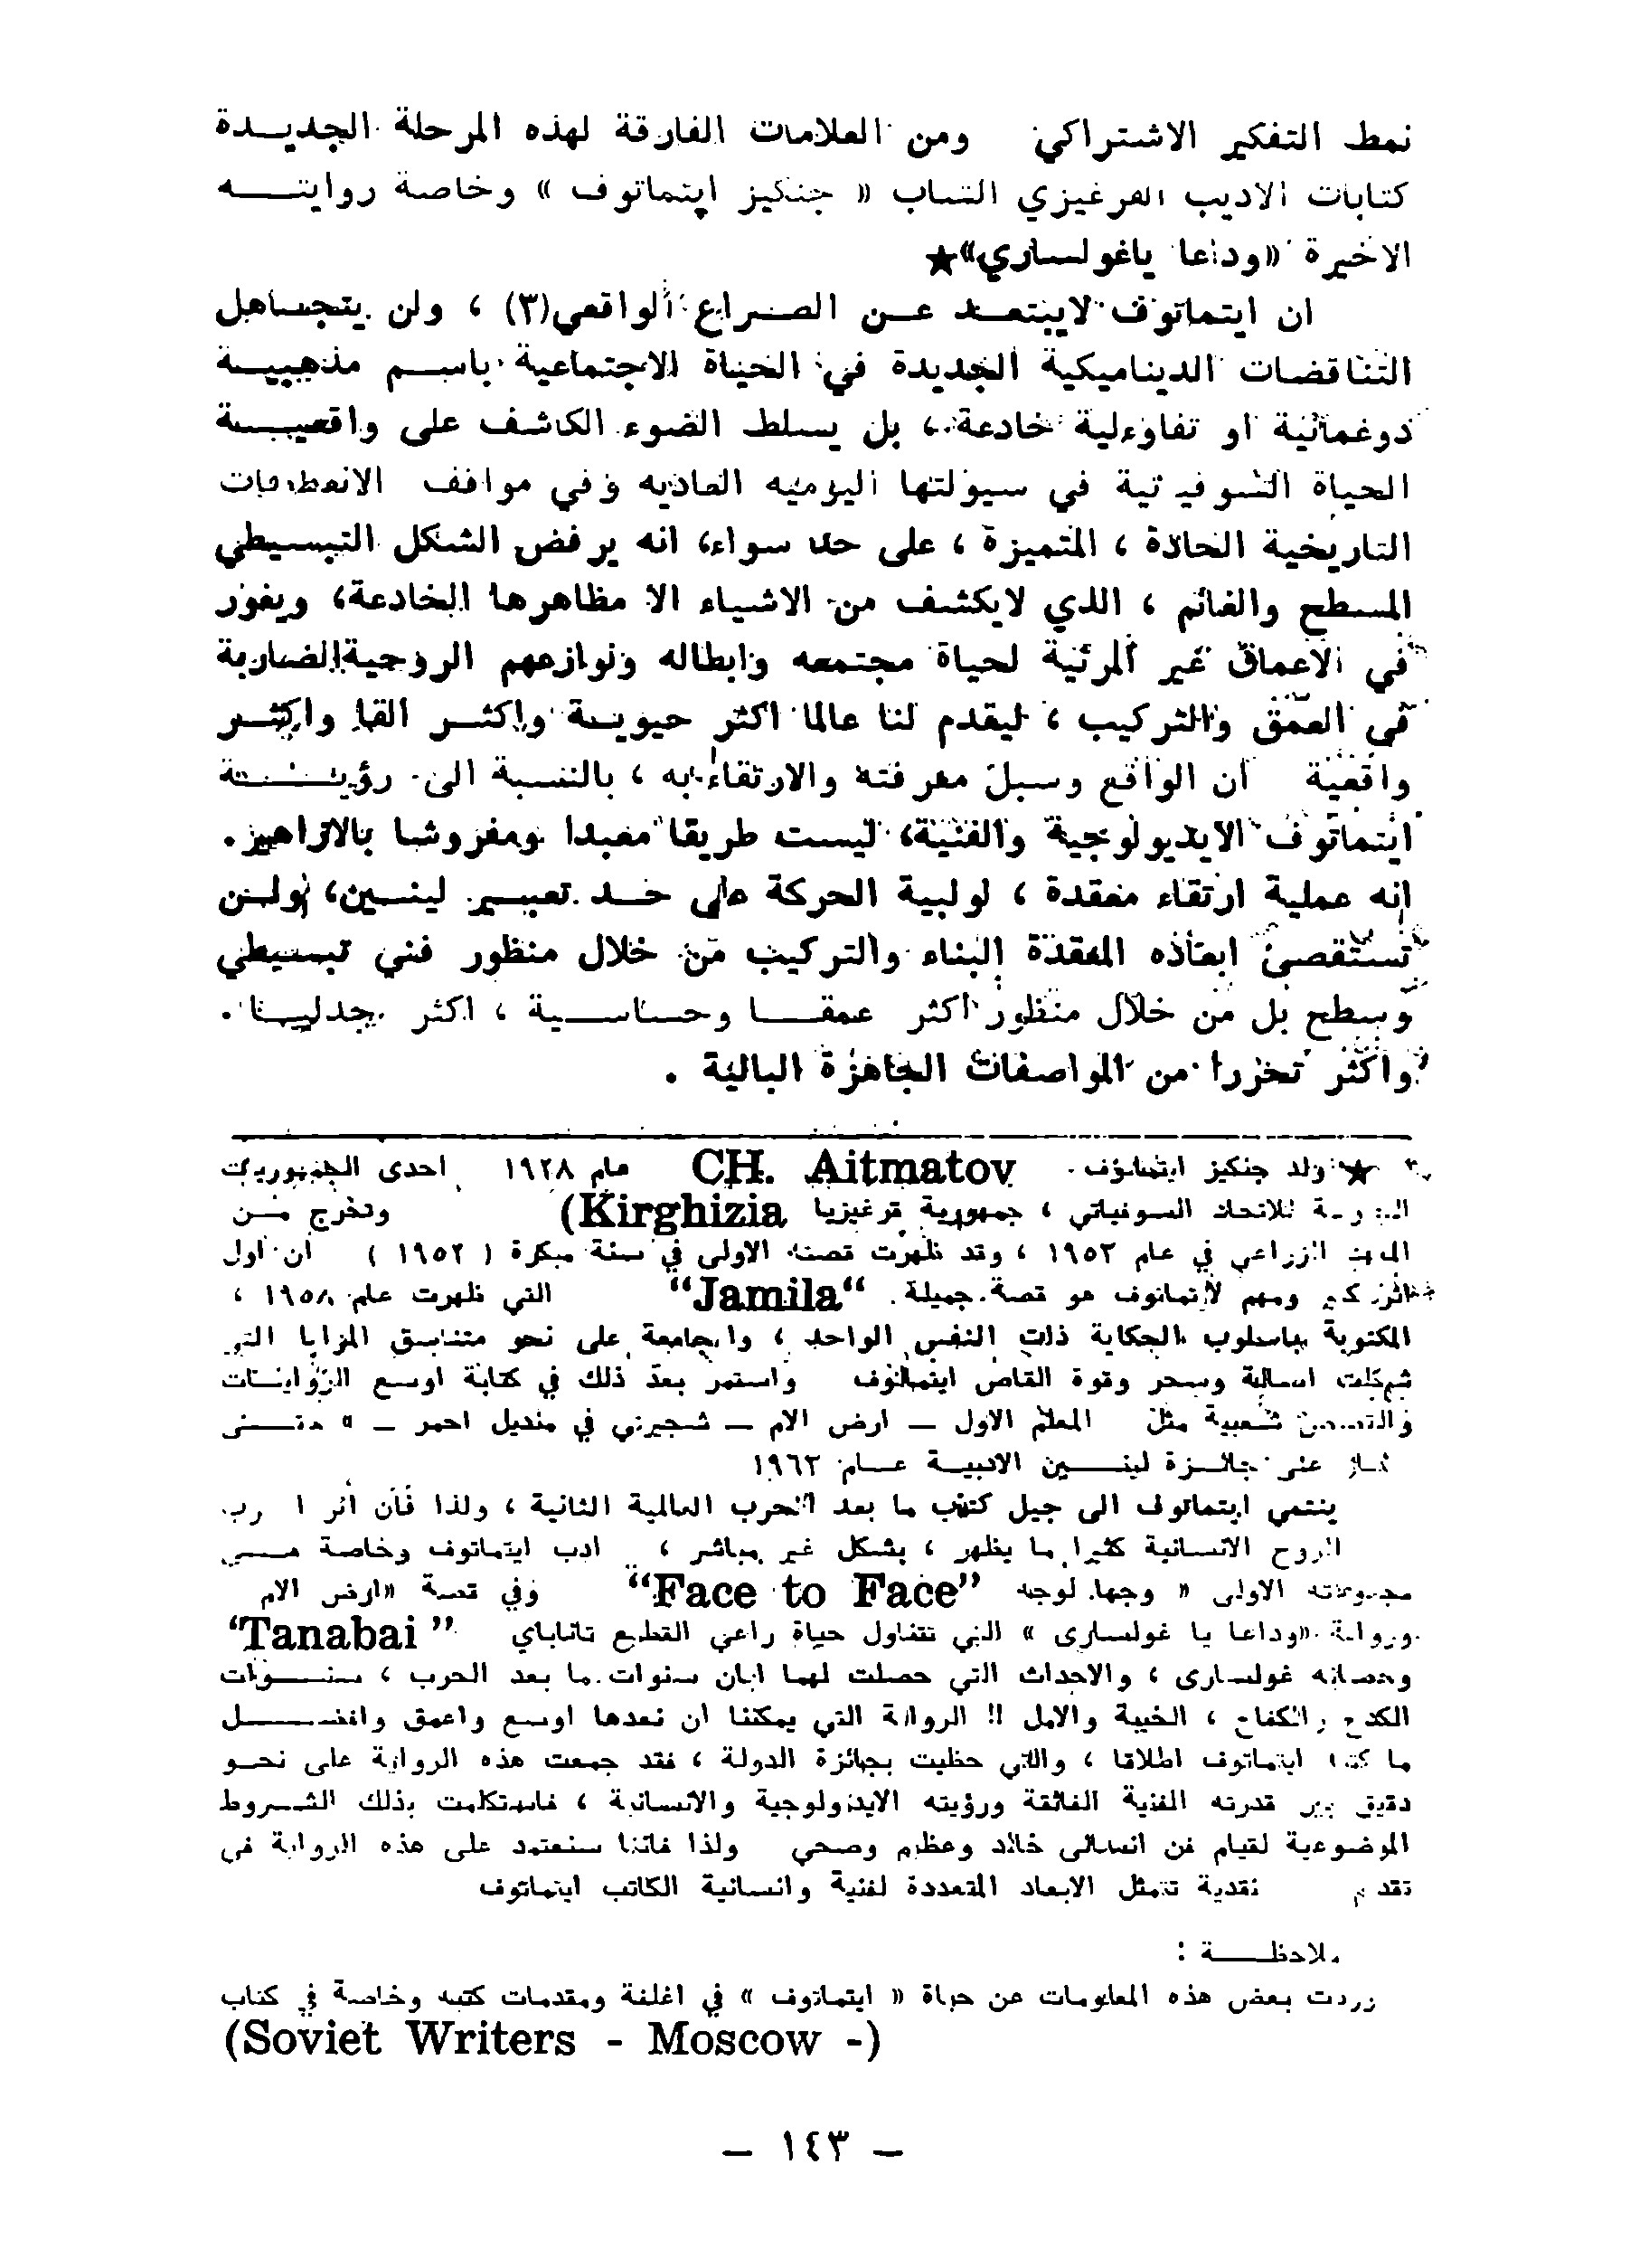 نمط التفكير الاشتراكي ومن العلامات الفارقة لهذه المرحلة الجديدة
كتابات الاديب القرغيزي الشاب « جنكيز ايتماتوف » وخاصة روايته
الاخيرة «وداعا ياغولساري»★
ان ايتماتوف لايبتعد عن الصراع الواقعي(٣) ، ولن يتجاهل
التناقضات الديناميكية الجديدة في الحياة الاجتماعية باسم مذهبية
دوغمائية او تفاؤلية خادعة، بل يسلط الضوء الكاشف على واقعية
الحياة السوفيتية في سيولتها اليومية العادية وفي مواقف الانعطافات
التاريخية الحادة ، المتميزة ، على حد سواء، انه يرفض الشكل التبسيطي
المسطح والغائم ، الذي لايكشف من الاشياء الا مظاهرها الخادعة، ويغور
في الاعماق غير المرئية لحياة مجتمعه وابطاله ونوازعهم الروحية الضاربة
في العمق والتركيب ، ليقدم لنا عالما اكثر حيوية واكثر القا واكثر
واقعية ان الواقع وسبل معرفته والارتقاء به ، بالنسبة الى رؤية
ايتماتوف الايديولوجية والفنية، ليست طريقا معبدا ومفروشا بالازاهير.
انه عملية ارتقاء معقدة ، لولبية الحركة على حد تعبير لينين، ولن
تستقصى ابعاده المعقدة البناء والتركيب من خلال منظور فني تبسيطي
وسطح بل من خلال منظور اكثر عمقا وحساسية ، اكثر جدليا.
واكثر تحررا من المواصفات الجاهزة البالية .
★ ولد جنكيز ايتماتوف CH. Aitmatov عام ١٩٢٨ احدى الجمهوريات
للاتحاد السوفياتي ، جمهورية قرغيزيا (Kirghizia وتخرج من
الزراعي في عام ١٩٥٢ ، وقد ظهرت قصته الاولى في سنة مبكرة ( ١٩٥٢ ) ان اول
ومهم لايتماتوف هو قصة جميلة "Jamila" التي ظهرت عام ١٩٥٨ ،
المكتوبة باسلوب الحكاية ذات النفس الواحد ، والجامعة على نحو متناسق المزايا التي
شكلت اصالة وسحر وقوة القاص ايتماتوف واستمر بعد ذلك في كتابة اوسع الروايات
شعبية مثل المعلم الاول – ارض الام – شجيرتي في منديل احمر –
جائزة لينين الادبية عام ١٩٦٣
ينتمي ايتماتوف الى جيل كتاب ما بعد الحرب العالمية الثانية ، ولذا فان اثر
الروح الانسانية كثيرا ما يظهر ، بشكل غير مباشر ، ادب ايتماتوف وخاصة
مجموعته الاولى « وجها لوجه "Face to Face" وفي قصة «ارض الام
ورواية «وداعا يا غولسارى » التي تتناول حياة راعي القطيع تاناباي 'Tanabai "
وحصانه غولسارى ، والاحداث التي حصلت لهما ابان سنوات ما بعد الحرب ، سنوات
الكدح والكفاح ، الخيبة والامل !! الرواية التي يمكننا ان نعدها اوسع واعمق وافضل
ما كتب ايتماتوف اطلاقا ، والتي حظيت بجائزة الدولة ، فقد جمعت هذه الرواية على نحو
دقيق بين قدرته الفنية الفائقة ورؤيته الايديولوجية والانسانية ، فاستكملت بذلك الشروط
الموضوعية لقيام فن انسانى خالد وعظيم وصحي ولذا فاننا سنعتمد على هذه الرواية في
نقدية تتمثل الابعاد المتعددة لفنية وانسانية الكاتب ايتماتوف
ملاحظة :
وردت بعض هذه المعلومات عن حياة « ايتماتوف » في اغلفة ومقدمات كتبه وخاصة في كتاب
(Soviet Writers - Moscow -)
– ١٤٣ –